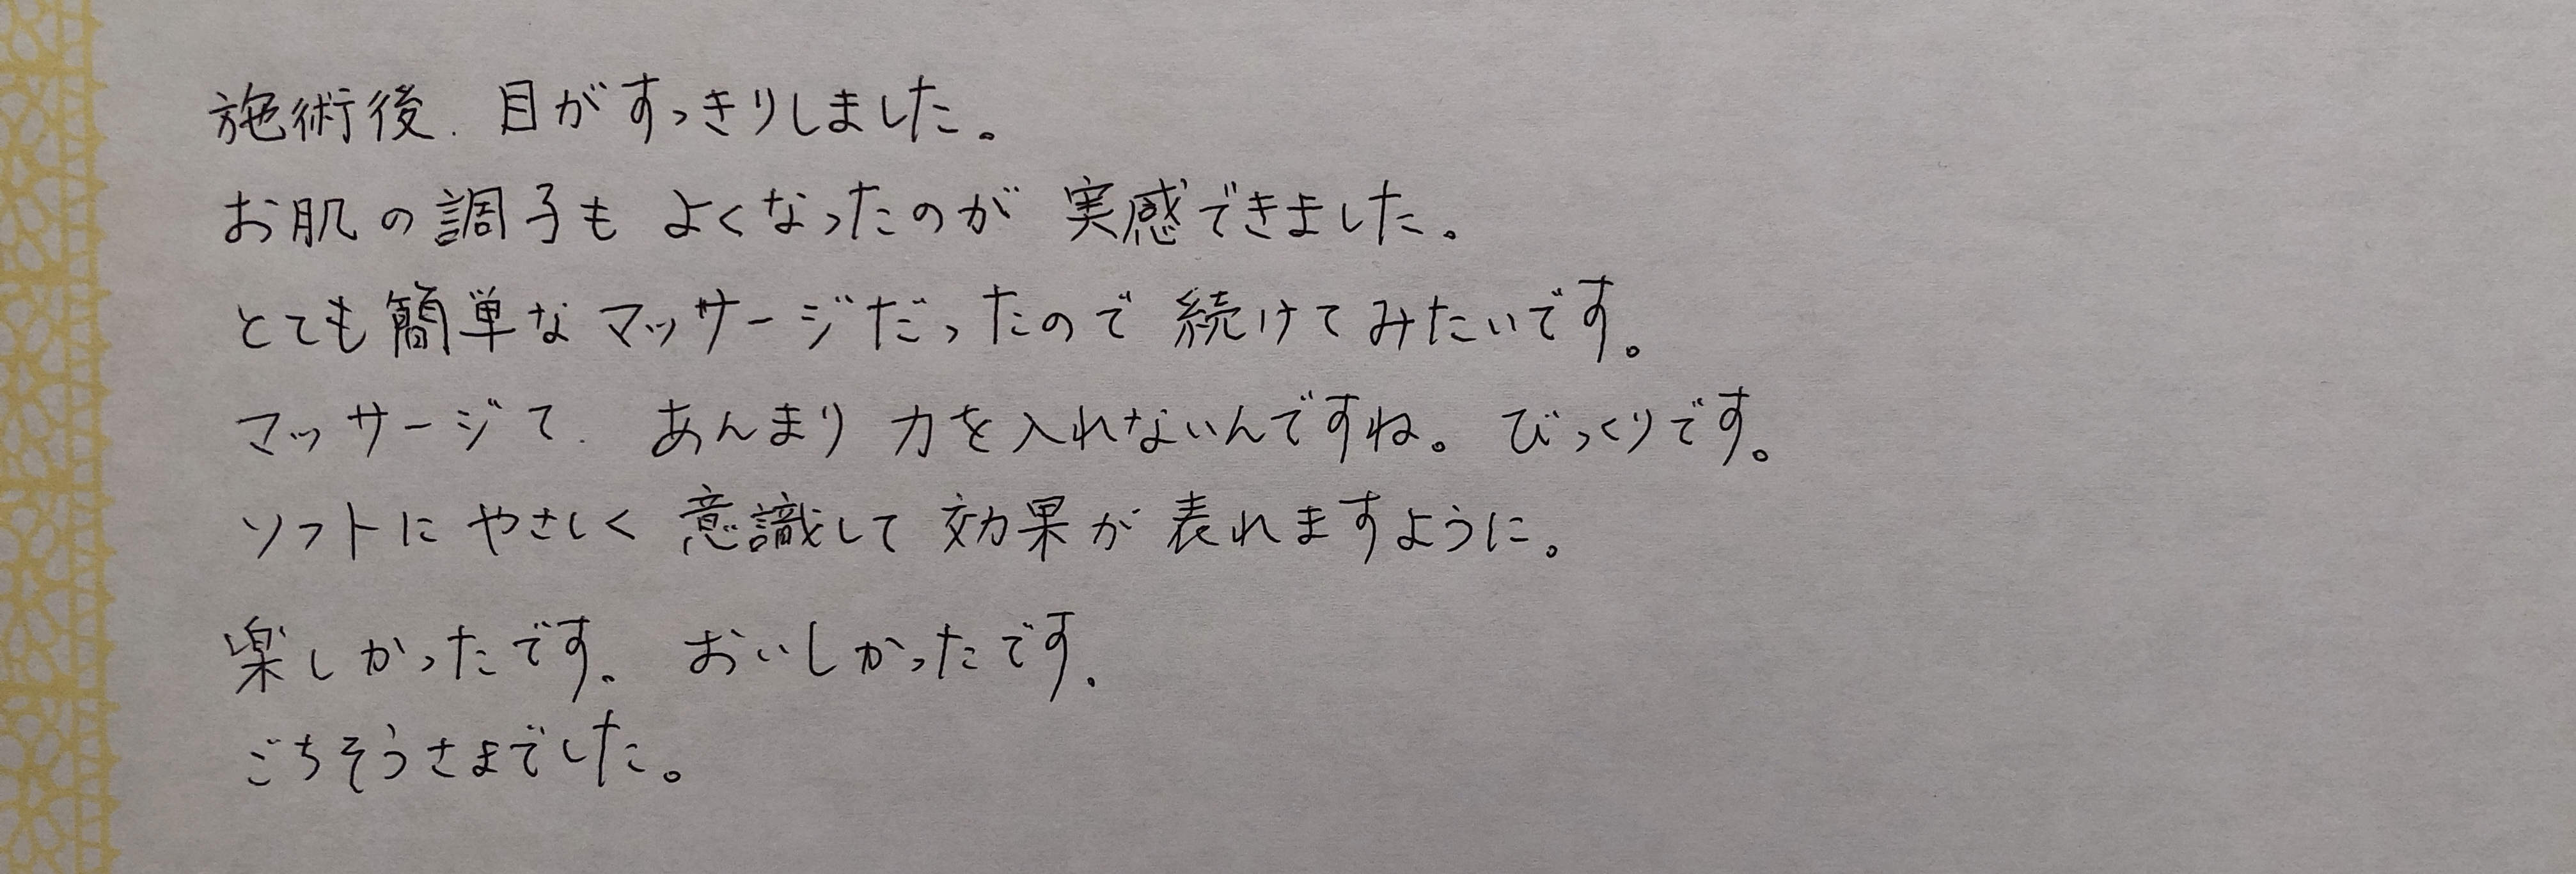 施術後、目がすっきりしました。
お肌の調子も よくなったのが 実感できました。
とても簡単な マッサージだったので 続けてみたいです。
マッサージて、あんまり 力を入れないんですね。びっくりです。
ソフトに やさしく 意識して 効果が 表れますように。
楽しかったです。 おいしかったです。
ごちそうさまでした。